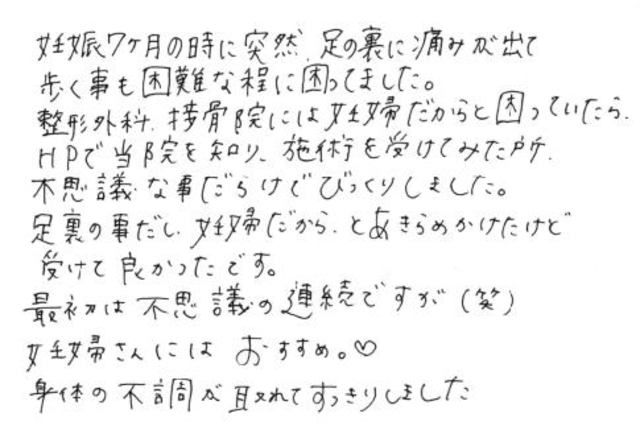 妊娠7ヶ月の時に突然、足の裏に痛みが出て
歩く事も困難な程に困ってました。
整形外科、接骨院には妊婦だからと困っていたら、
HPで当院を知り、施術を受けてみた所、
不思議な事だらけでびっくりしました。
足裏の事だし、妊婦だから、とあきらめかけたけど
受けて良かったです。
最初は不思議の連続ですが(笑)
妊婦さんにはおすすめ。♡
身体の不調が取れてすっきりしました